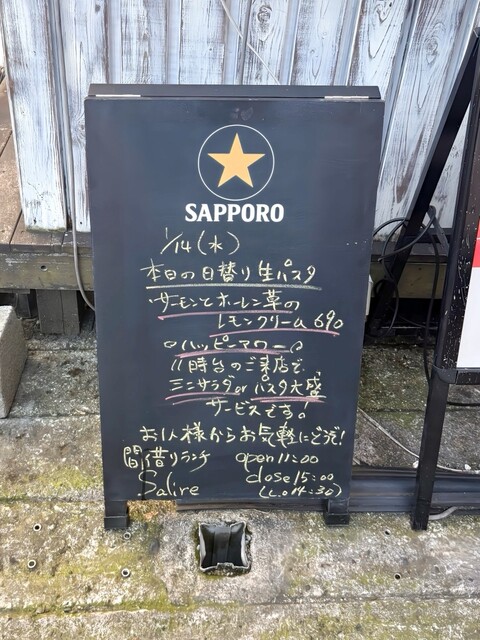 SAPPORO
1/14(水)
本日の日替り生パスタ
サーモンとホーレン草の
レモンクリーム 690
○ハッピーアワー○
11時台のご来店で
ミニサラダor パスタ大盛
サービスです。
お1人様からお気軽にどうぞ!
間借りランチ open 11:00
Salire close 15:00
(L.o 14:30)